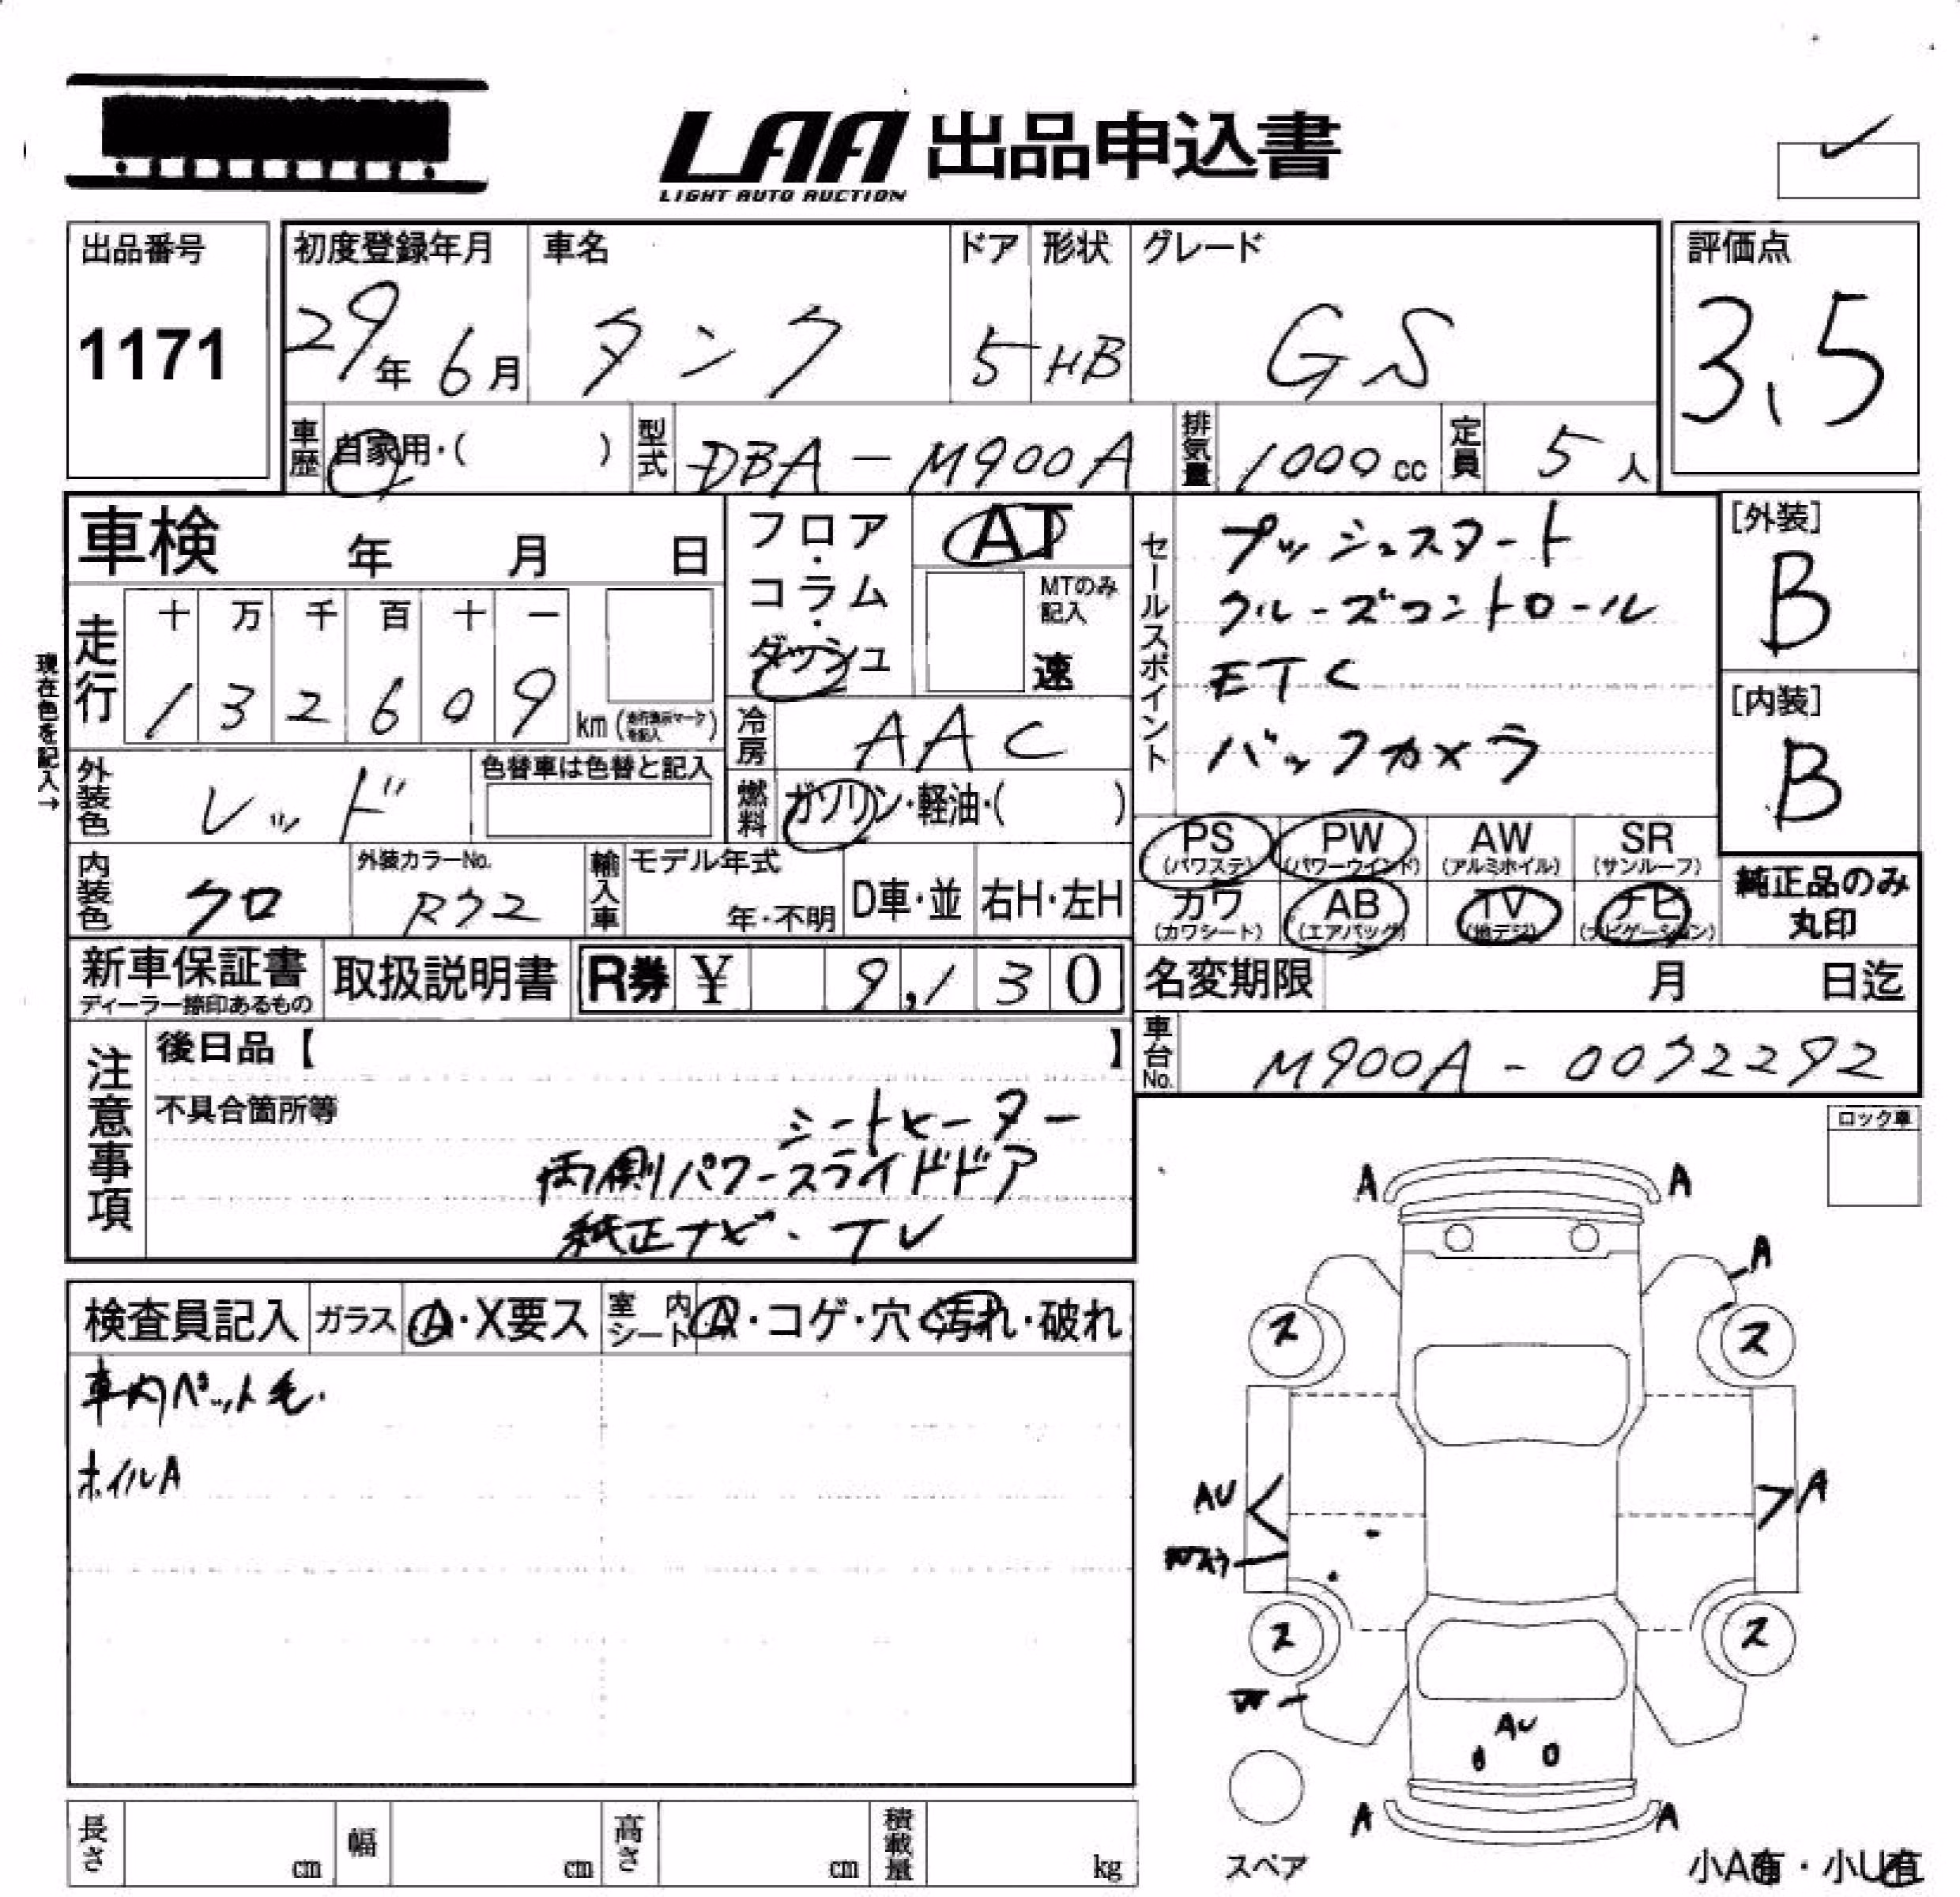 LAA 出品申込書
LIGHT AUTO AUCTION
出品番号
1171
初度登録年月
29年 6月
車名
タンク
ドア
5
形状
HB
グレード
GS
評価点
3.5
車歴 自家用・( )
型式 DBA-M900A
排気量 1000cc
定員 5人
車検 年 月 日
フロア・コラム・ダッシュ
AT
MTのみ記入
速
セールスポイント
プッシュスタート
クルーズコントロール
ETC
バックカメラ
[外装]
B
[内装]
B
現在色を記入→
走行
十 万 千 百 十 一
1 3 2 6 0 9 km
冷房 AAC
外装色 レッド
色替車は色替と記入
燃料 ガソリン・軽油・( )
内装色 クロ
外装カラーNo.
輸入車 モデル年式
年・不明
D車・並 右H・左H
PS (パワステ)
PW (パワーウインド)
AW (アルミホイル)
SR (サンルーフ)
カワ (カワシート)
AB (エアバッグ)
TV (地デジ)
ナビ (ナビゲーション)
純正品のみ
丸印
新車保証書
ディーラー捺印あるもの
取扱説明書
R券 ¥ 9,130
名変期限 月 日迄
車台No. M900A-0032292
注意事項
後日品【 】
不具合箇所等
シートヒーター
両側パワースライドドア
純正ナビ・TV
ロック車
検査員記入
ガラス A・X要ス
室内シート A・コゲ・穴・汚れ・破れ
車内ペット毛.
ホイルA
A A
A
ス ス
AU
A
ス ス
AU
A A
スペア
長さ cm
幅 cm
高さ cm
積載量 kg
小A有・小U有